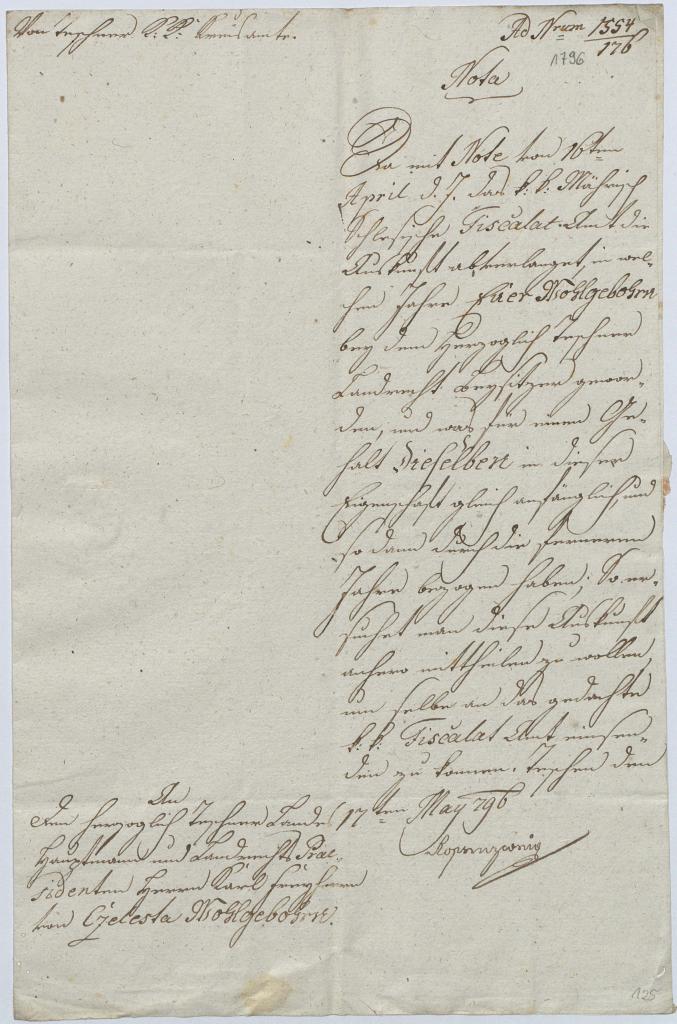 Von Teschner K: K: Kreisamte.
Ad Nrum 1554
176
1796
Nota
Da mit Note von 16ten
April d. J. das k: k: Mährisch
Schlesische Fiscalat-Amt die
Auskunft abverlanget, in wel-
chen Jahre Euer Wohlgebohrn
bey dem Herzoglich Teschner
Landrecht Beysitzer gewor-
den, und was für einen Ge-
halt Dieselben in dieser
Eigenschaft gleich anfänglich, und
so dann durch die ferneren
Jahre bezogen haben; So er-
suchet man diese Auskunft
anhero mittheilen zu wollen,
um selbe an das gedachte
k: k: Fiscalat Amt einsen-
den zu können. Teschen den
17ten May 796
An
den herzoglich Teschner Landes
Hauptmann und Landrechts Prae-
sidenten Herrn Karl Freyherrn
von Czelesta Wohlgebohrn.
125